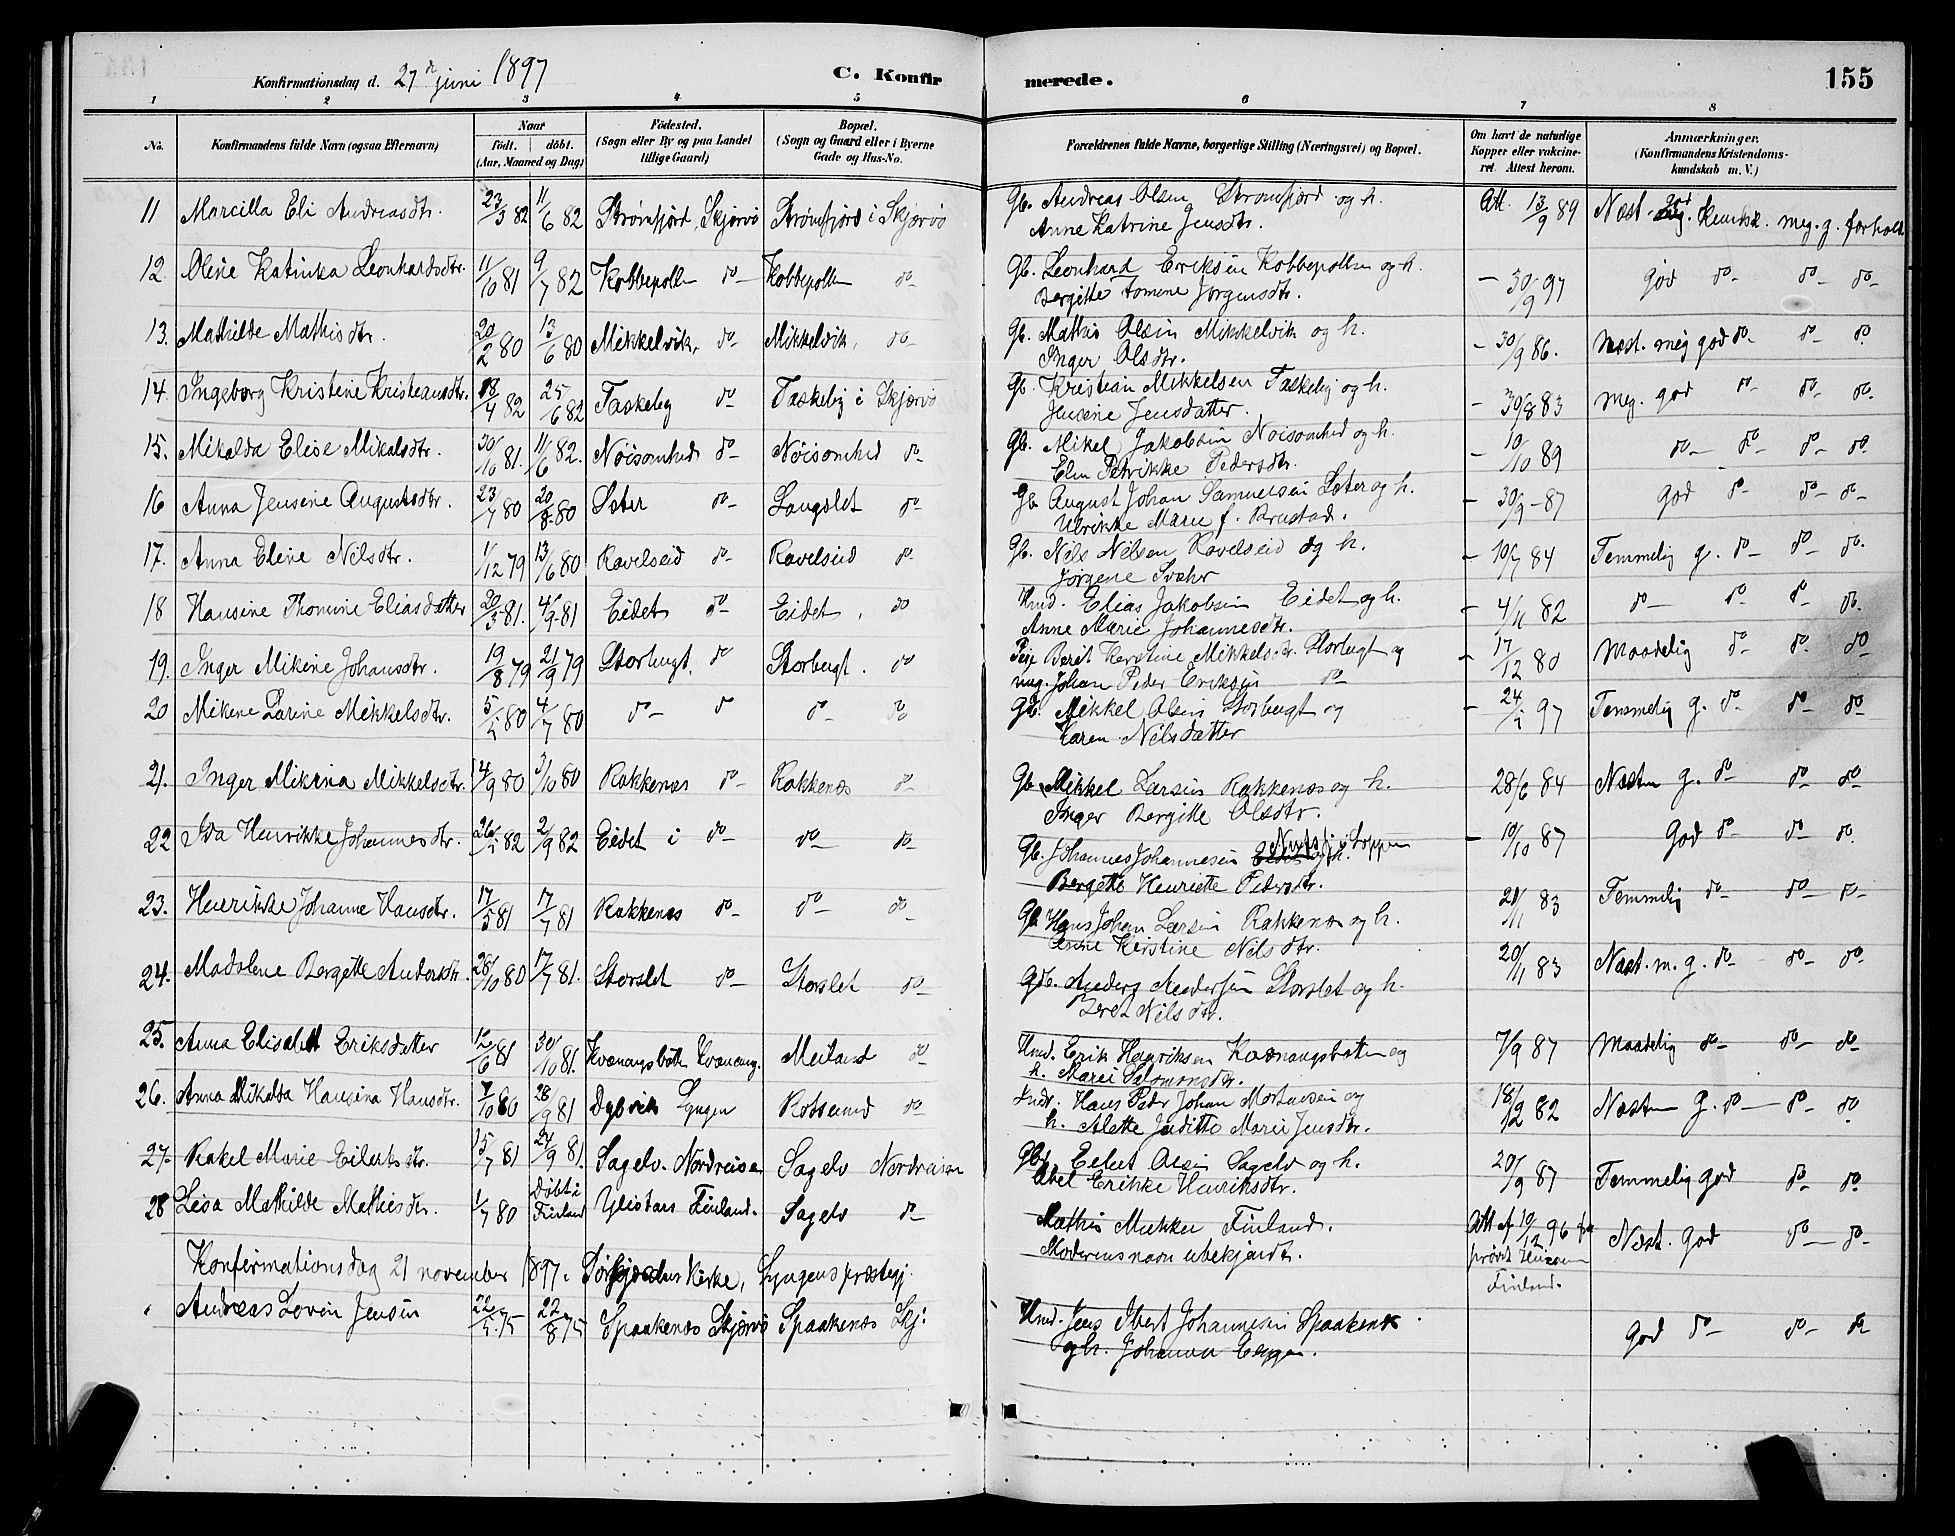 Konfirmationsdag d. 27de juni 1897
C. Konfirmerede.
155
1 2 3 4 5 6 7 8
No. Konfirmandens fulde Navn (ogsaa Efternavn) Naar født. døbt. (Aar, Maaned og Dag) Fødested. (Sogn eller By og paa Landet tillige Gaard) Bopæl. (Sogn og Gaard eller i Byerne Gade og Hus-No. Forældrenes fulde Navne, borgerlige Stilling (Næringsvei) og Bopæl. Om havt de naturlige Kopper eller vakcineret. Attest herom. Anmærkninger. (Konfirmandens Kristendomskundskab m. V.)
11 Marcilla Eli Andreasdtr. 23/3 82 11/6 82 Strømfjord, Skjærvø Strømfjord i Skjærvø Gb. Andreas Olsen Strømfjord og h. Att. 13/9 89 Næst. god Kundsk. meg. g. forhold
Anne Katrine Jensdtr.
12. Oline Katinka Leonhardsdtr. 11/10 81 9/7 82 Kobbepollen do- Kobbepollen do- Gb. Leonhard Eriksen Kobbepollen og h. - 30/9 97 god do- do- do-
Bergitte Tomine Jørgensdtr.
13. Mathilde Mathisdtr. 20/2 80 13/6 80 Mikkelvik, do- Mikkelvik, do- Gb. Mathis Olsen Mikkelvik og h. - 30/9 86. Næst. meg god do- do- do-
Inger Olsdtr.
14. Ingeborg Kristine Kristiansdtr. 18/4 82 25/6 82 Taskeby do- Taskeby i Skjærvø Gb. Kristian Mikkelsen Taskeby og h. - 30/8 83 meg. god do- do- do-
Jensine Jensdatter.
15. Mikalda Elise Mikalsdtr. 30/10 81. 11/6 82. Nøisomhed do- Nøisomhed do- Gb. Mikal Jakobsen Nøisomhed og h. - 10/10 89 do- do- do- do-
Elen Petrikke Pedersdtr.
16 Anna Jensine Augustsdtr. 23/7 80 20/8 80 Sæter do- Langslet do- Gb. August Johan Samuelsen Sæter og h. - 30/9 - 87 god do- do- do-
Ulrikke Marie f. Brustad.
17. Anna Eline Nilsdtr. 1/12 79 13/6 80 Ravelseid do- Ravelseid do- Gb. Nils Nilsen Ravelseid og h. - 10/7 84 Temmelig g. do- do- do-
Jørgine
18 Hansine Thomine Eliasdatter 20/3 81. 4/9 81 Eidet do- Eidet, do Hmd. Elias Jakobsen Eidet og h. - 4/11 82 do- do- do- do-
Anne Marie Johannesdtr.
19. Inger Mikine Johansdtr. 19/8 79 21/9 79 Storbugt, do Storbugt. do Pige Berit Kerstine Mikkelsdtr. Storbugt og - 17/12 80 maadelig do- do- do-
ung. Johan Peder Eriksen do-
20 Mikine Larine Mikkelsdtr. 5/5 80 4/7 80 do- do do- do Gb. Mikkel Olsen Storbugt og - 24/5 97 Temmelig g. do- do- do-
Karen Nilsdatter
21. Inger Mikina Mikkelsdtr. 14/9 80 31/10 80 Rakkenæs do- Rakkenæs do- Gb. Mikkel Larsen Rakkenæs og h. 28/6 84 Næsten g. do- do- do-
Inger Bergitte Olsdtr.
22 Ida Henrikke Johannesdtr. 26/5 82 2/9 82 Eidet i do- do- do- Gb. Johannes Johannesen i Loppen - 10/10 87 God do- do- do-
Bergette Henriette Pedersdtr.
23. Henrikke Johanne Hansdtr. 17/5 81 17/7 81 Rakkenæs do- do- do- Gb. Hans Johan Larsen Rakkenæs og h. 21/11 83 Temmelig do- do- do-
Anne Kerstine Nilsdtr.
24. Madalene Bergette Andersdtr. 28/10 80 17/7 81. Storslet do- Storslet do- Gdb. Anders Andersen Storslet og h. 20/11 83 Næst. m. g. do- do- do-
Beret Nilsdtr.
25. Anna Elisabet Eriksdatter 12/6 81 30/10 81. Kvænangsbotn Kvænang. Meiland do Hmd. Erik Henriksen Kvænangsbotn og 7/9 87 maadelig do- do- do-
h. Marei Salomonsdtr.
26. Anna Mikalda Hansina Hansdtr. 7/10 80 28/9 81 Dybvik Lyngen Rotsund do- Indr. Hans Peder Johan Mortensen og 18/12 82 Næsten g. do- do- do
h. Alette Juditte Marei Jensdtr.
27. Rakel Marie Eilertsdtr. 15/7 81 24/9 81. Sagelv. Nordreisen Sagelv Nordreisen Gb. Eilert Olsen Sagelv og h. 20/9 87 Temmelig god do- do-
Abel Erikke Henriksdtr.
28 Lisa Mathilde Mathisdtr. 1/7 80 Døbt i Finland Ylistaro Finland. Sagelv do- Mathis Mukka Finland. Att af 10/12 96 fra Næst. god do- do-
Moderens navn ubekjendt. Finland.
Konfirmationsdag 21 november 1897. Kirke, Lyngens præstegj.
Andreas Lovin Jensen 22/5 75 22/8 75 Spaakenæs Skjærvø Spaakenæs Skj. Hmd. Jens Ibert Johannesen Spaakenæs god do- do- do-
og h. Johanna